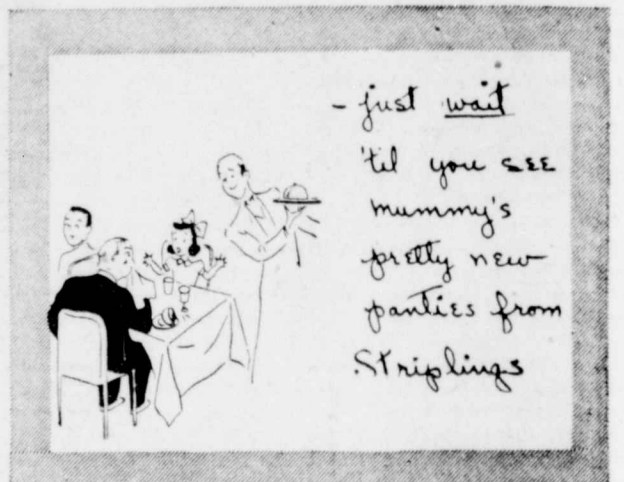 - just wait
'til you SEE
mummy's
pretty new
panties from
Striplings